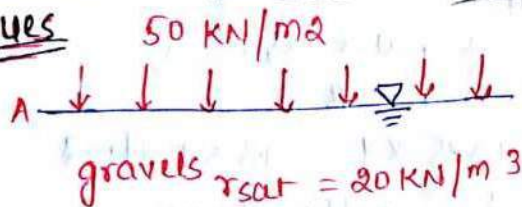 ques
50 KN/m2
A
gravels rsat = 20 KN/m3